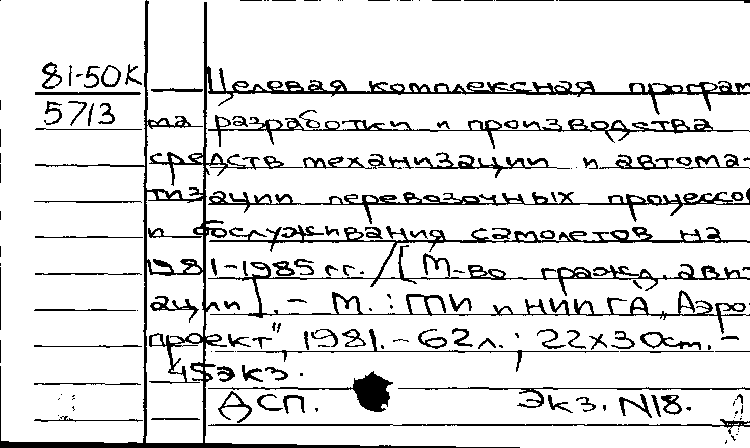 81-50К
5713
Целевая комплексная програм
ма разработки и производства
средств механизации и автома-
тизации перевозочных процессов
и обслуживания самолетов на
1981-1985 гг. /[М-во гражд. ави
ации]. - М.: ГПИ и НИИ ГА „Аэро
проект", 1981. - 62 л.; 22х30 см. -
45 экз.
ДСП. Экз. N18.